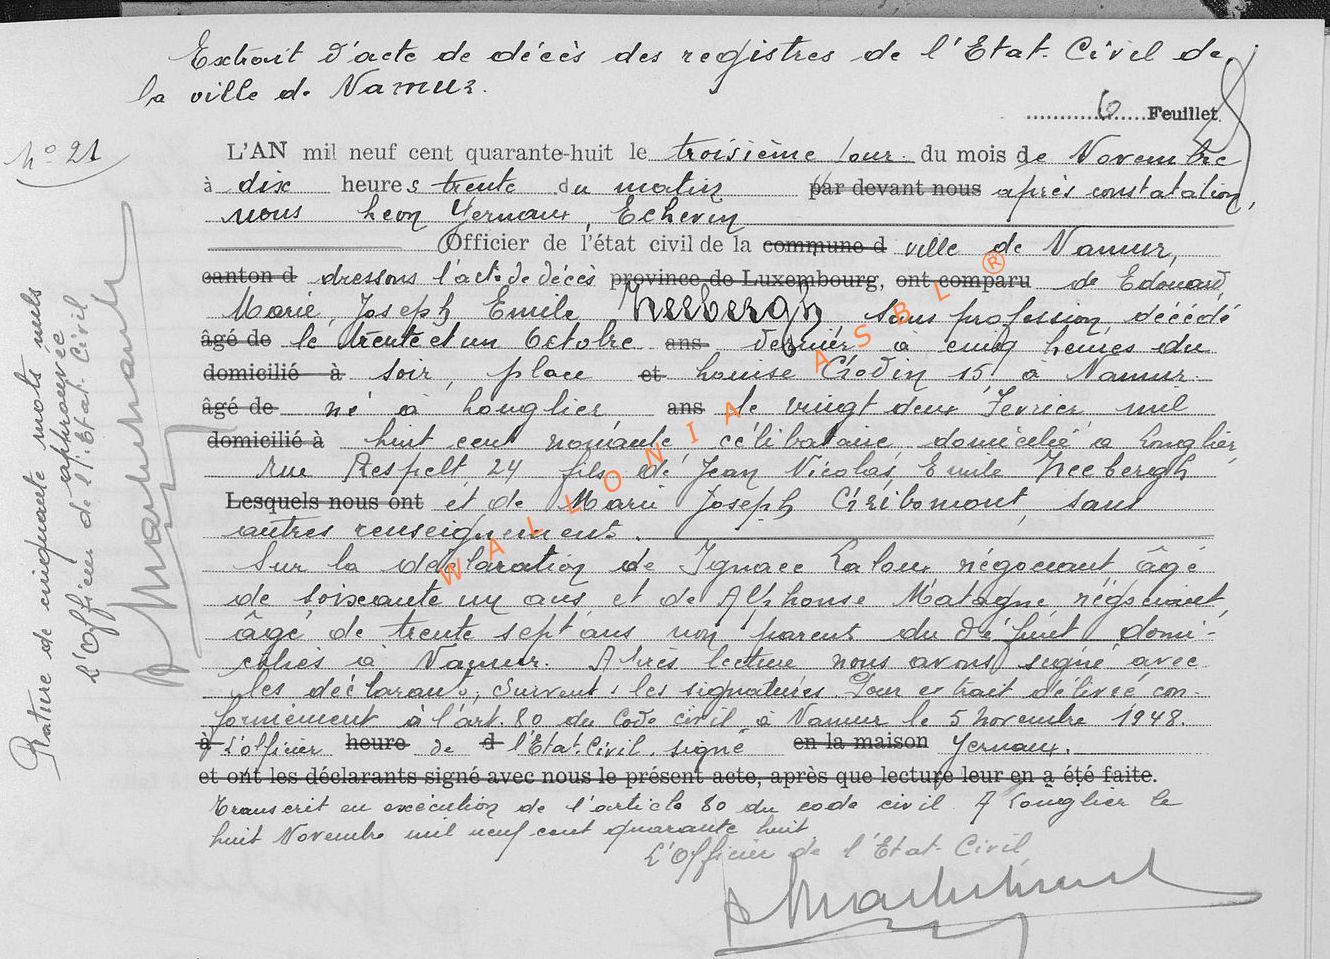 Extrait d'acte de décès des registres de l'Etat-Civil de
la ville de Namur.
6 Feuillet
N° 21
L'AN mil neuf cent quarante-huit le troisième jour du mois de Novembre
à dix heures trente du matin par devant nous après constatation,
nous Leon Yernaux, Echevin
Officier de l'état civil de la commune d ville de Namur,
canton d dressons l'acte de décès province de Luxembourg, ont comparu de Edouard
Marie, Joseph Emile Neebergh sans profession, décédé
âgé de le trente et un Octobre ans dernier à cinq heures du
domicilié à soir, place et Louise Godin 15 à Namur.
âgé de né à Longlier ans le vingt deux Fevrier mil
domicilié à huit cent nonante, célibataire, domicilié à Longlier,
rue Respelt, 24 fils de Jean Nicolas, Emile Neebergh
Lesquels nous ont et de Marie Joseph Gribomont, sans
autres renseignements.
Sur la déclaration de Ignace Laloux négociant âgé
de soixante un ans et de Alphonse Matagne, négociant,
âgé de trente sept ans non parents du défunt domi-
ciliés à Namur. Après lecture nous avons signé avec
les déclarants, Suivent les signatures. Pour extrait délivré con-
formément à l'art. 80 du Code civil à Namur le 5 novembre 1948.
à L'officier heure de d l'Etat-Civil. signé en la maison Yernaux.
et ont les déclarants signé avec nous le présent acte, après que lecture leur en a été faite.
Transcrit en exécution de l'article 80 du code civil. A Longlier le
huit Novembre mil neuf cent quarante huit.
L'Officier de l'Etat-Civil,
Rature de cinquante mots nuls
approuvée
L'officier de l'Etat-Civil
WALLONIA ASBL ®